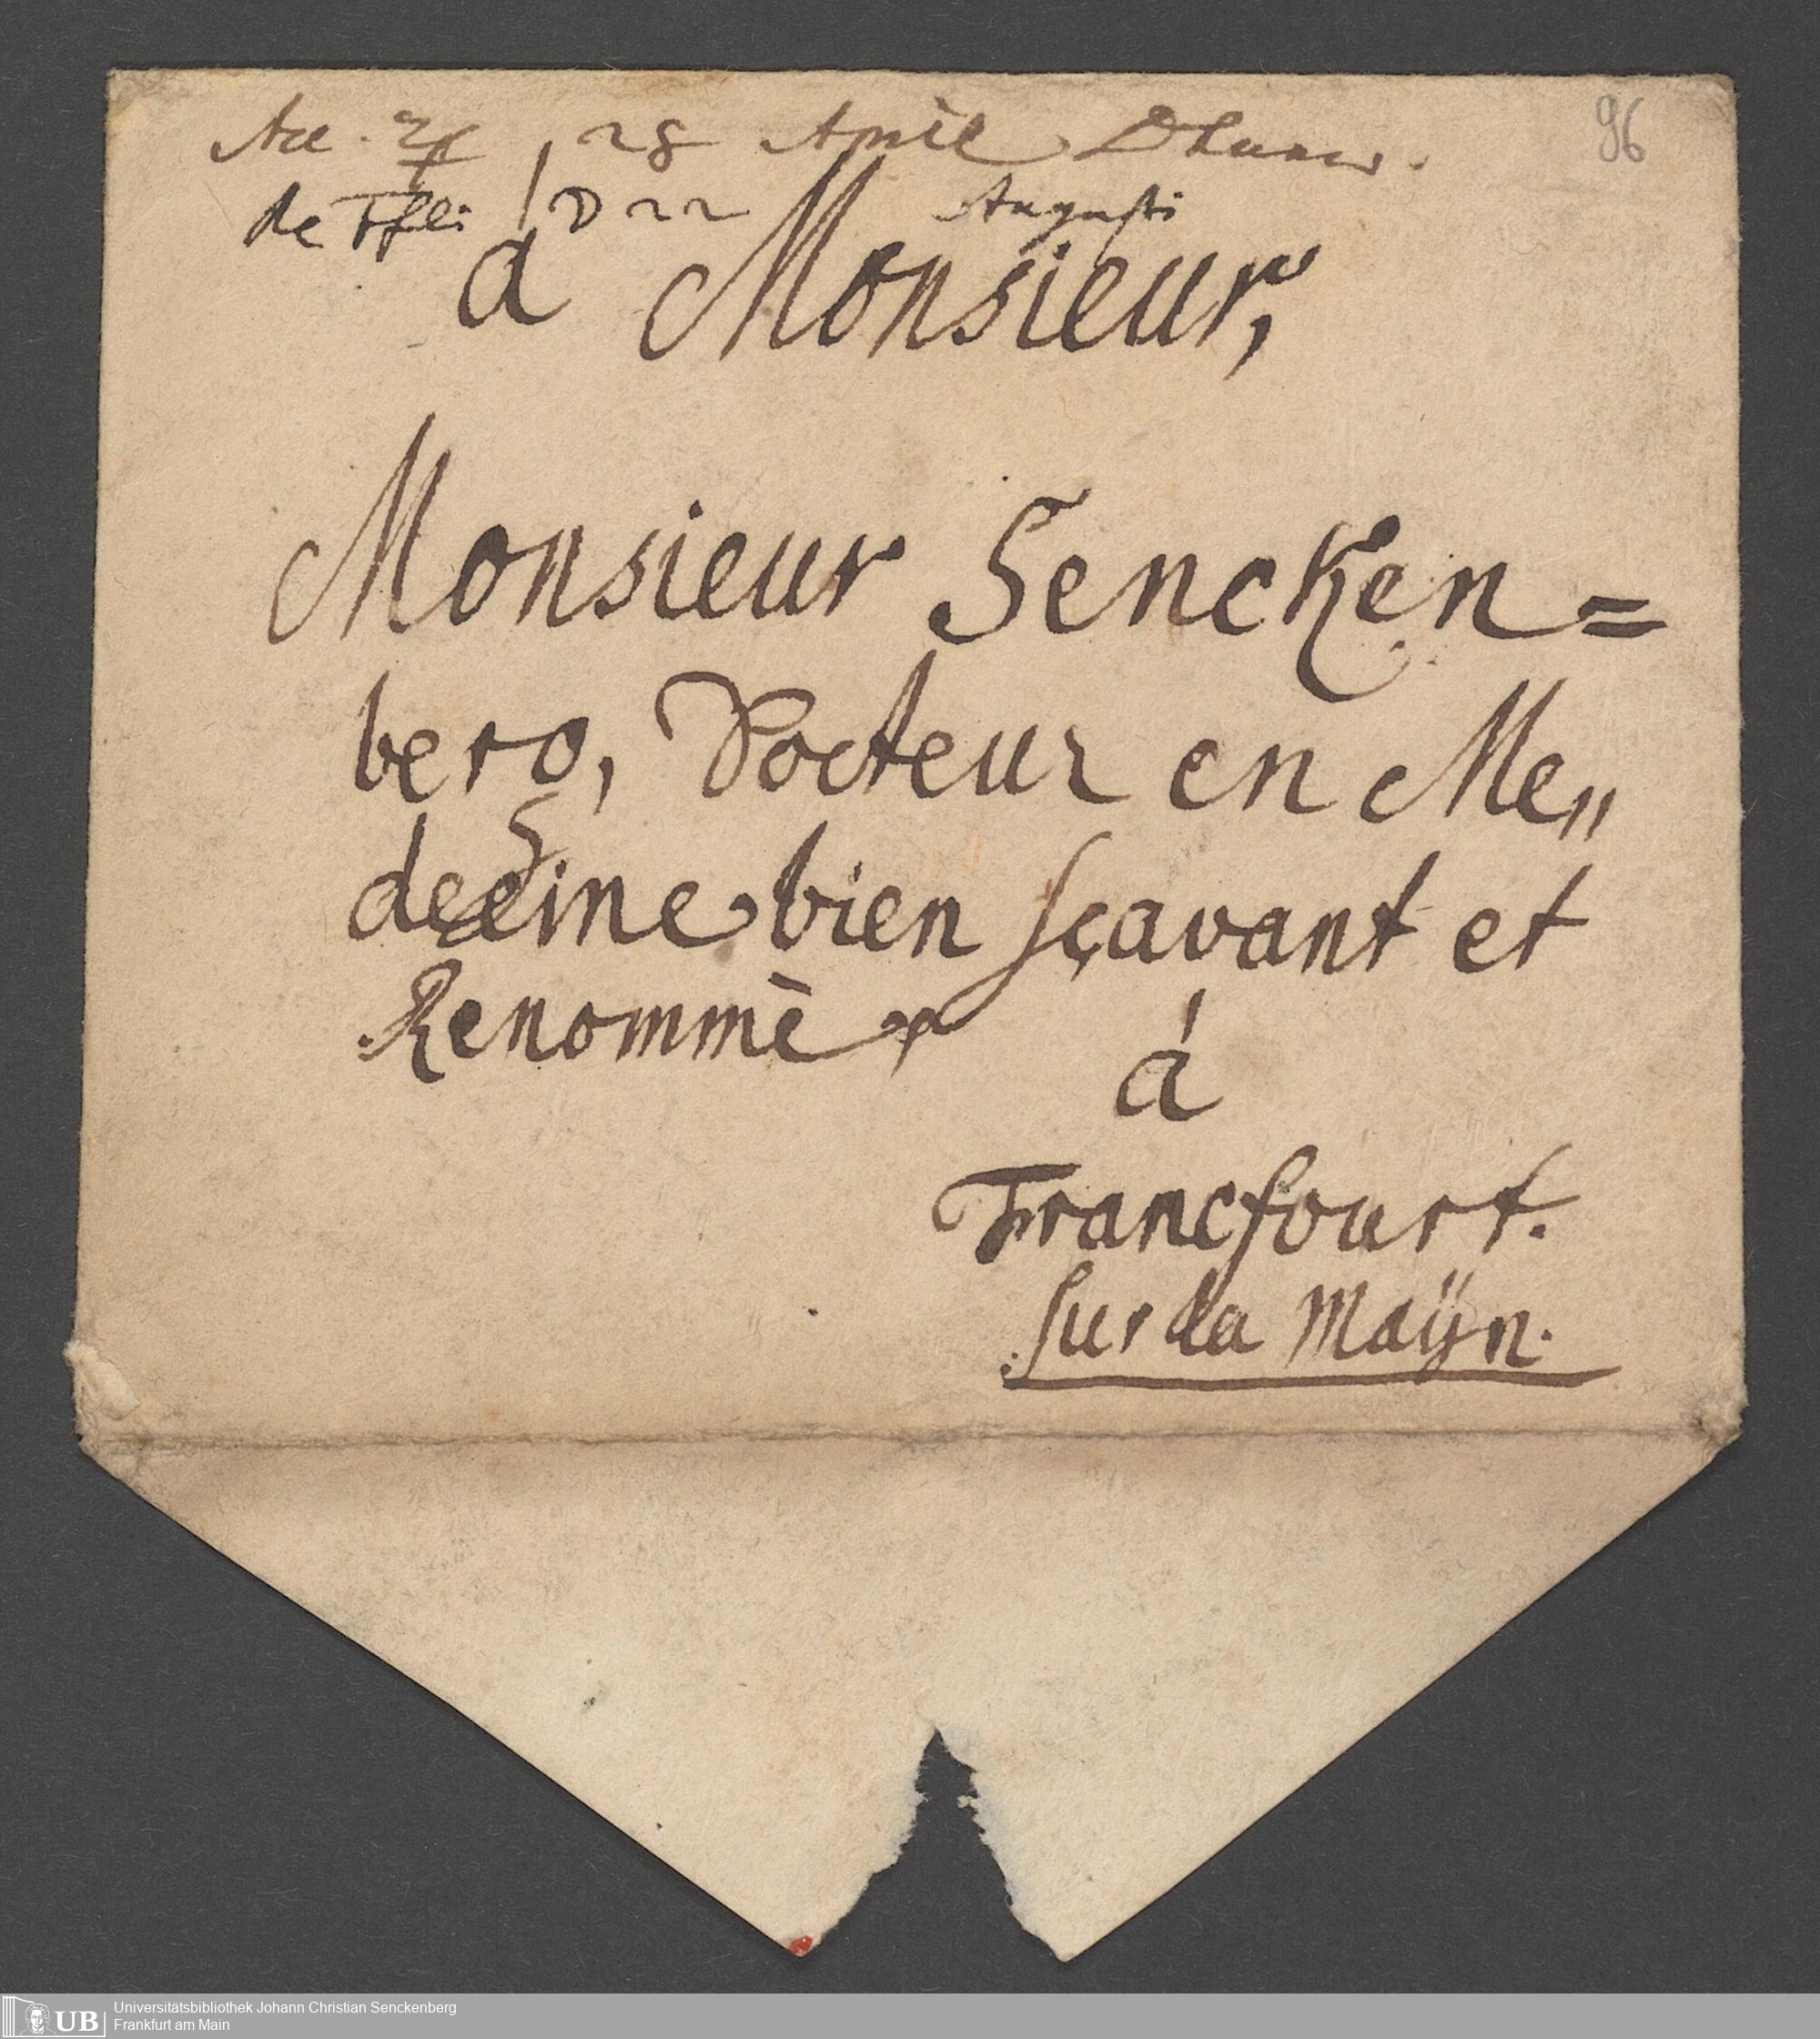 Acc. 28 April
96
22 Augusti
a Monsieur,
Monsieur Sencken=
berg, Docteur en Me„
decine bien sçavant et
Renommè
á
Francfourt.
sur la Maÿn.
UB
Universitätsbibliothek Johann Christian Senckenberg
Frankfurt am Main